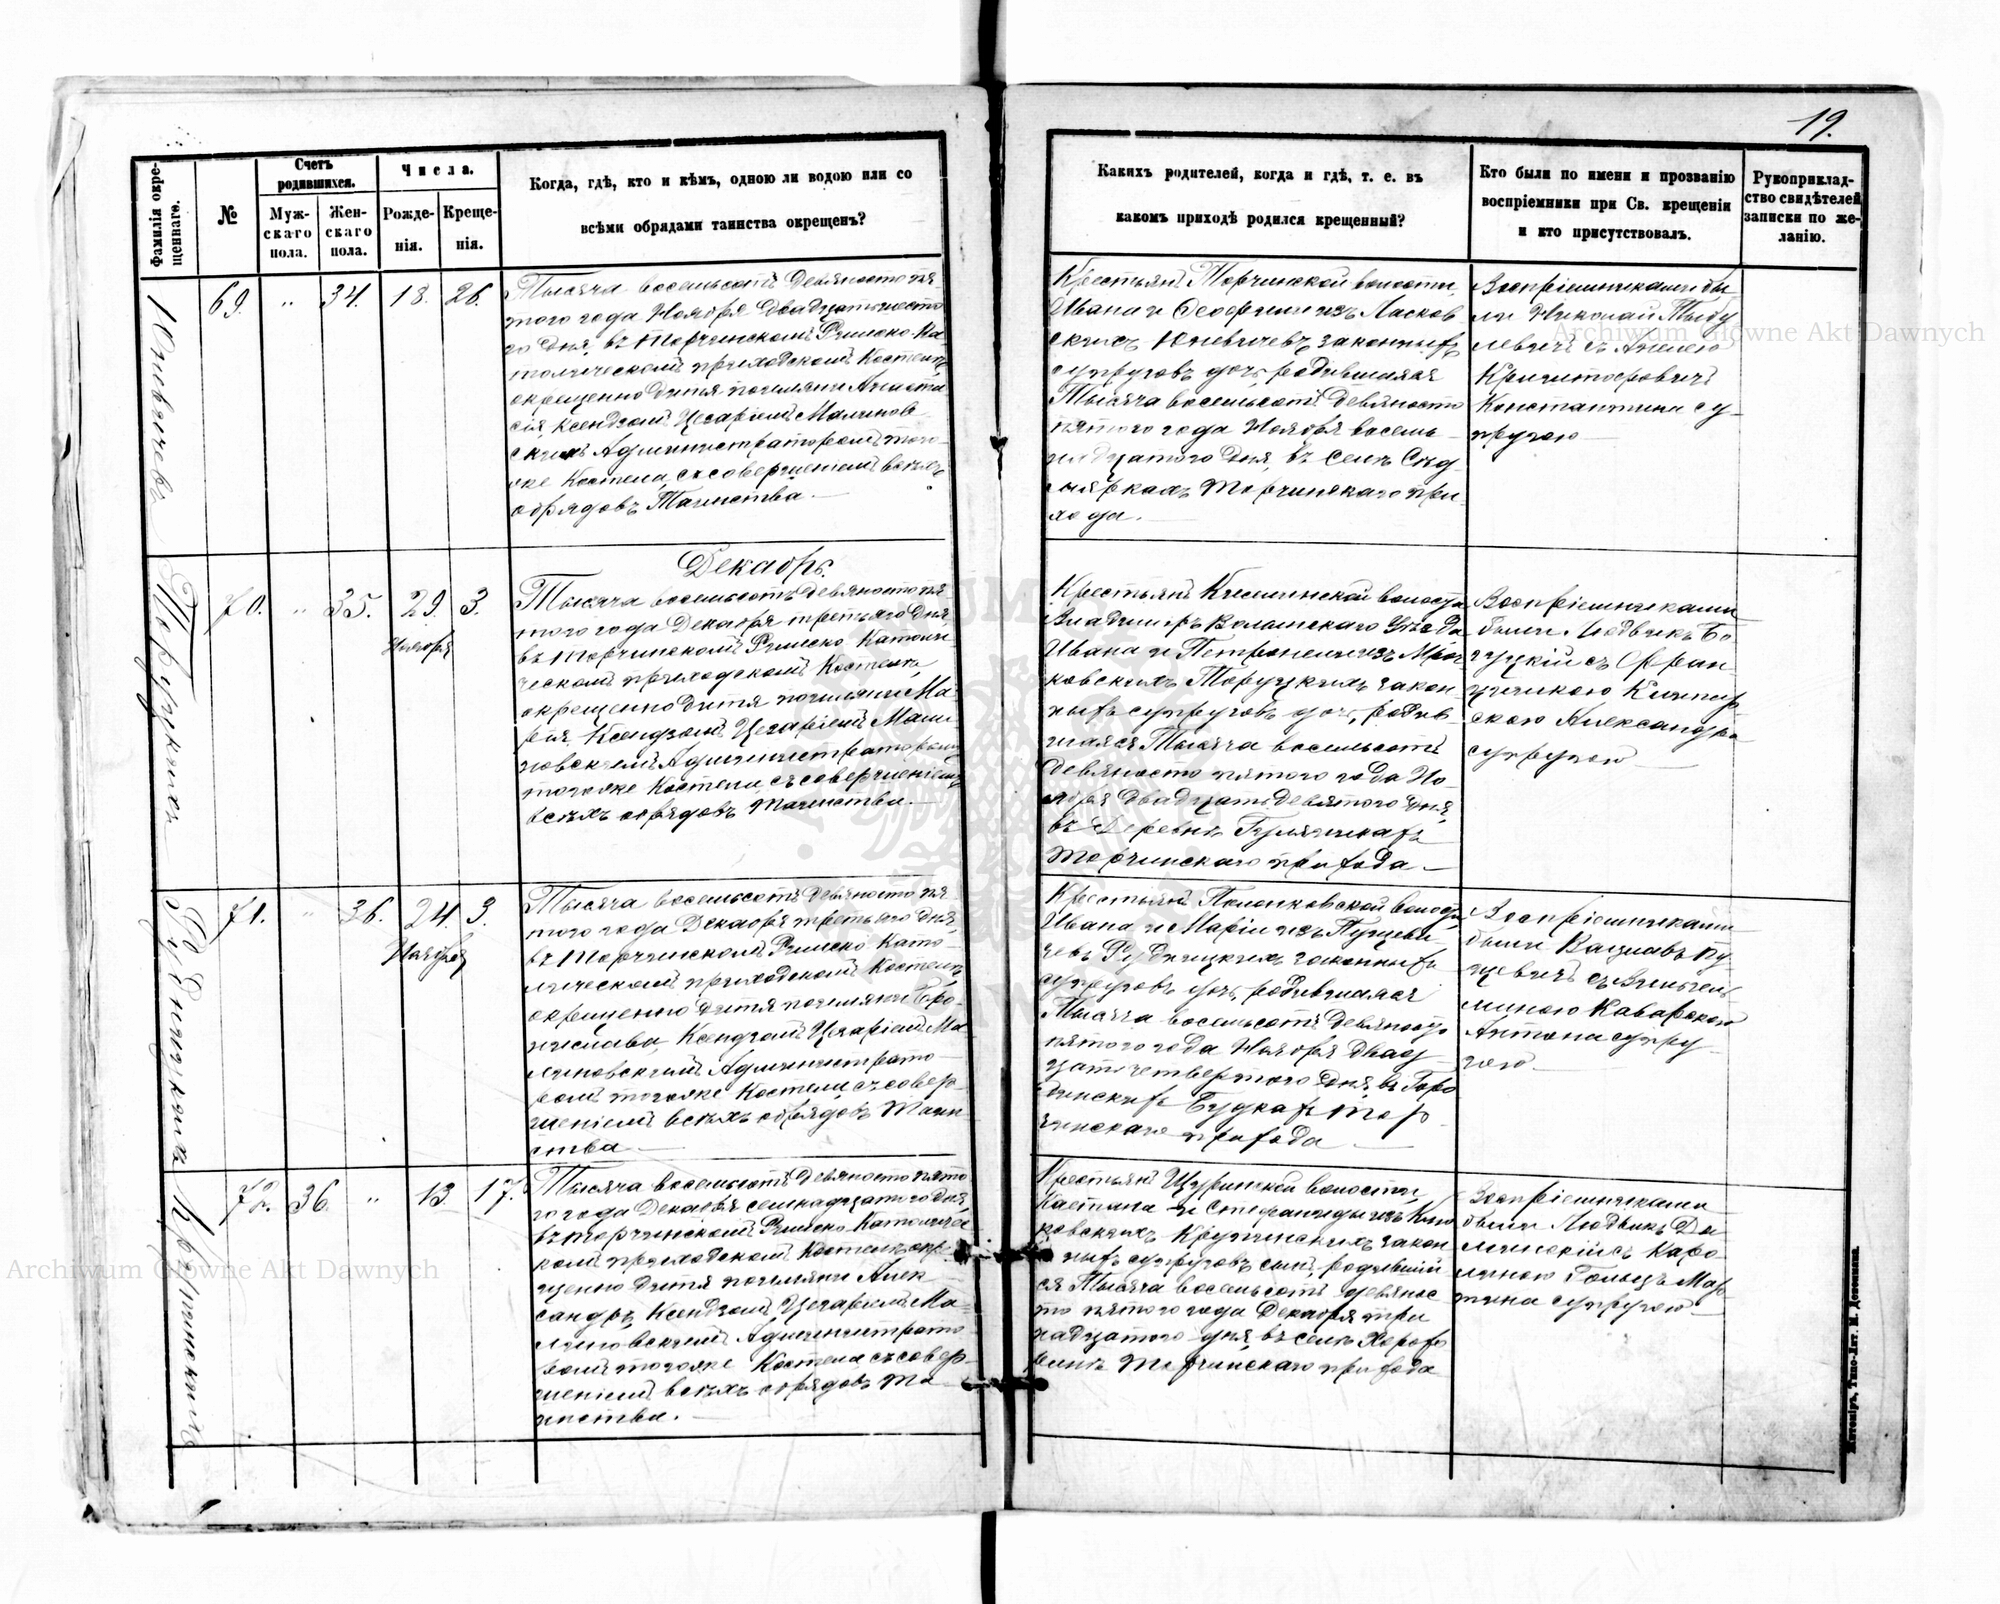 19.
Фамилія окре-
щеннаго.
№
Счетъ
родившихся.
Муж-
скаго
пола.
Жен-
скаго
пола.
Числа.
Рожде-
нія.
Креще-
нія.
Когда, гдѣ, кто и кѣмъ, одною ли водою или со
всѣми обрядами таинства окрещенъ?
Каких родителей, когда и гдѣ, т. е. въ
какомъ приходѣ родился крещенный?
Кто были по имени и прозванію
воспріемники при Св. крещеніи
и кто присутствовалъ.
Рукоприклад-
ство свидѣтелей
записки по же-
ланію.
69. " 34. 18. 26.
Тысяча восемьсотъ девяносто пя
того года Ноября двадцать шесто
го дня, въ Торчинскомъ Римско-Ка
толическомъ приходскомъ Костелѣ
окрещено дитя именемъ Анаста
сія, Ксендзомъ Цезаріемъ Малинов-
скимъ Администраторомъ того-
же Костела, съ совершеніемъ всѣхъ
обрядовъ Таинства.
Крестьянъ Торчинской волости,
Ивана и Теофилии изъ Ласков
скихъ Юневичевъ законныхъ
супруговъ дочь, родившаяся
Тысяча восемьсотъ девяносто
пятого года Ноября восемь-
надцатого дня, въ селѣ
Торчинскаго при
хода.
Воспріемниками бы
ли Николай
съ
Константина су-
пругою
Декабрь.
70. " 35. 29. 3.
Ноября
Тысяча восемьсотъ девяносто пя
того года Декабря третьяго дня,
въ Торчинскомъ Римско Католи
ческомъ приходскомъ Костелѣ
окрещено дитя именемъ Ма-
рія, Ксендзомъ Цезаріемъ Мали
новскимъ Администраторомъ
тогоже Костела, съ совершеніемъ
всѣхъ обрядовъ Таинства.
Крестьянъ волости
Владиміръ Волынскаго уѣзда
Ивана и Петронели изъ
ковскихъ Торуцкихъ закон-
ныхъ супруговъ дочь, родив-
шаяся Тысяча восемьсотъ
девяносто пятого года Но-
ября двадцать девятого дня,
въ деревнѣ
Торчинскаго прихода.
Воспріемниками
были Людвикъ Бо-
гуцкій съ Фран-
цишкою
скою Александра
супругою
71. " 36. 24. 3.
Ноября
Тысяча восемьсотъ девяносто пя-
того года Декабря третьяго дня,
въ Торчинскомъ Римско Като-
лическомъ приходскомъ Костелѣ
окрещено дитя именемъ Бро-
нислава, Ксендзомъ Цезаріемъ Ма-
линовскимъ Администрато
ромъ тогоже Костела, съ совер-
шеніемъ всѣхъ обрядовъ Таин
ства
Крестьянъ Полонковской волости
Ивана и Маріи изъ Пуцеви-
чевъ Рудницкихъ законныхъ
супруговъ дочь, родившаяся
Тысяча восемьсотъ девяносто
пятого года Ноября двад-
цать четвертого дня, въ
Будкахъ Тор
чинскаго прихода
Воспріемниками
были Вацлавъ Пу-
цевичъ съ Вильгель
миною
Антона супру-
гою.
72. 36. " 13. 17.
Тысяча восемьсотъ девяносто пято
го года Декабря семнадцатого дня,
въ Торчинскомъ Римско Католичес
комъ приходскомъ Костелѣ окре-
щено дитя именемъ Алек
сандръ, Ксендзомъ Цезаріемъ Ма-
линовскимъ Администрато
ромъ тогоже Костела съ совер-
шеніемъ всѣхъ обрядовъ Та-
инства.
Крестьянъ Щуринской волости
Каетана и Стефаниды изъ
ковскихъ Кручинскихъ закон
ныхъ супруговъ сынъ, родивший
ся Тысяча восемьсотъ девянос
то пятого года Декабря три
надцатого дня, въ селѣ
Торчинскаго прихода
Воспріемниками
были Людвикъ
съ Каро
линою Гольцъ Мар
тина супругою
Житоміръ, Типо-Лит. М. Дененмана.
Archiwum Główne Akt Dawnych
Archiwum Główne Akt Dawnych